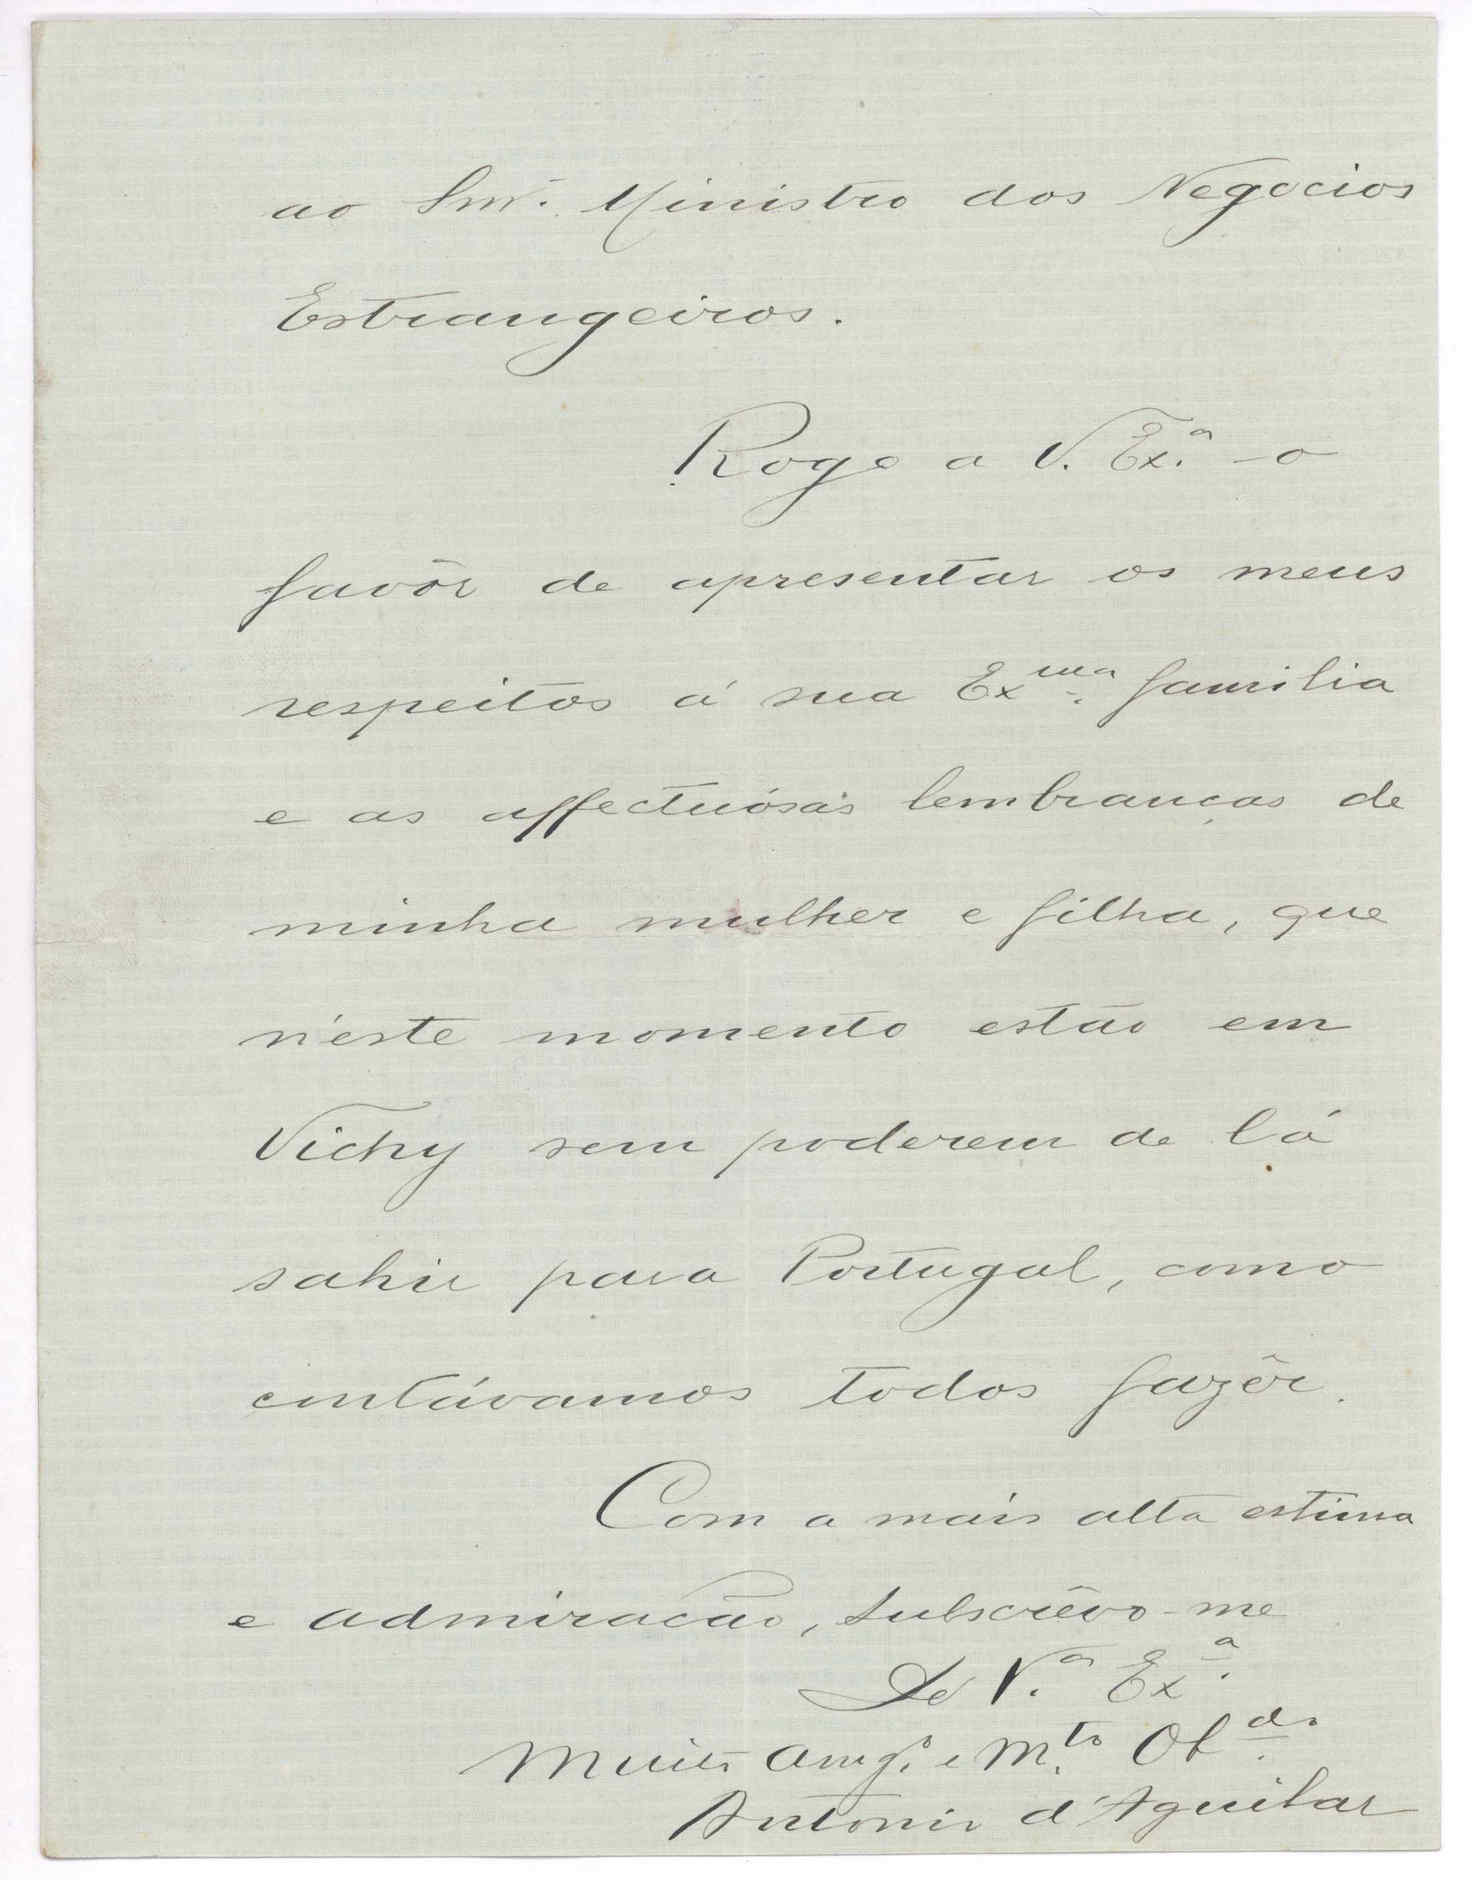 ao Snr. Ministro dos Negocios
Estrangeiros.
Rogo a V. Ex.ª o
favôr de apresentar os meus
respeitos á sua Exma. familia
e as affectuósas lembranças de
minha mulher e filha, que
n'este momento estão em
Vichy sem poderem de lá
sahir para Portugal, como
contávamos todos fazêr.
Com a mais alta estima
e admiracão, subscrêvo-me
De V.ª Ex.ª
Muito Amg.º e M.to Obdo.
Antonio d'Aguilar